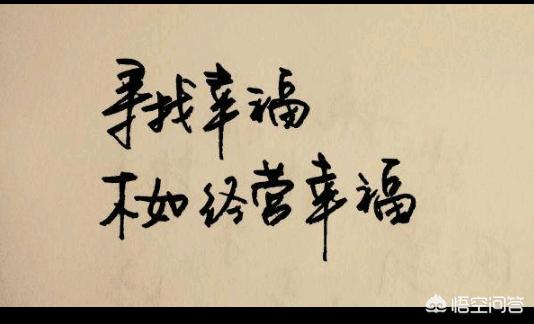 寻找幸福
不如经营幸福
悟空问答